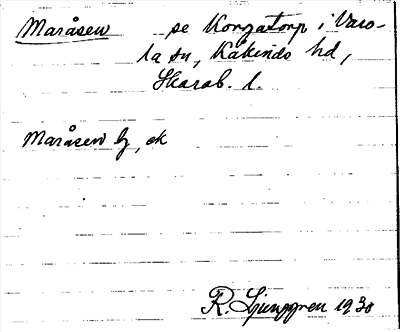 Maråsen se Korgatorp i Varo-
la sn, Kåkinds hd,
Skarab. l.
Maråsen lg, ek
R. Ljunggren 1930